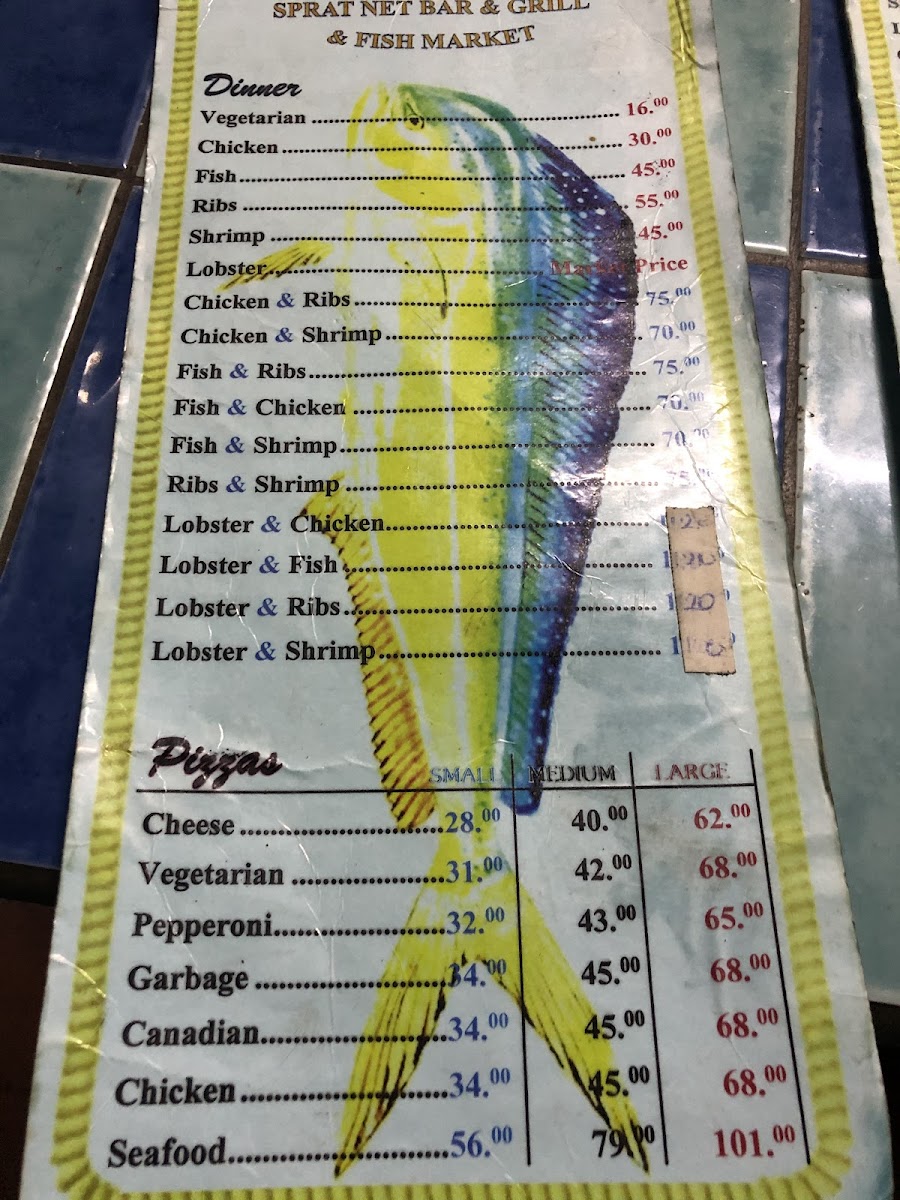 SPRAT NET BAR & GRILL
& FISH MARKET
Dinner
Vegetarian ........ 16.00
Chicken ........ 30.00
Fish ........ 45.00
Ribs ........ 55.00
Shrimp ........ 45.00
Lobster ........ Market Price
Chicken & Ribs ........ 75.00
Chicken & Shrimp ........ 70.00
Fish & Ribs ........ 75.00
Fish & Chicken ........ 70.00
Fish & Shrimp ........ 70.00
Ribs & Shrimp ........ 75.00
Lobster & Chicken ........ 120
Lobster & Fish ........ 120
Lobster & Ribs ........ 120
Lobster & Shrimp ........
Pizzas SMALL MEDIUM LARGE
Cheese ........ 28.00 40.00 62.00
Vegetarian ........ 31.00 42.00 68.00
Pepperoni ........ 32.00 43.00 65.00
Garbage ........ 34.00 45.00 68.00
Canadian ........ 34.00 45.00 68.00
Chicken ........ 34.00 45.00 68.00
Seafood ........ 56.00 79.00 101.00